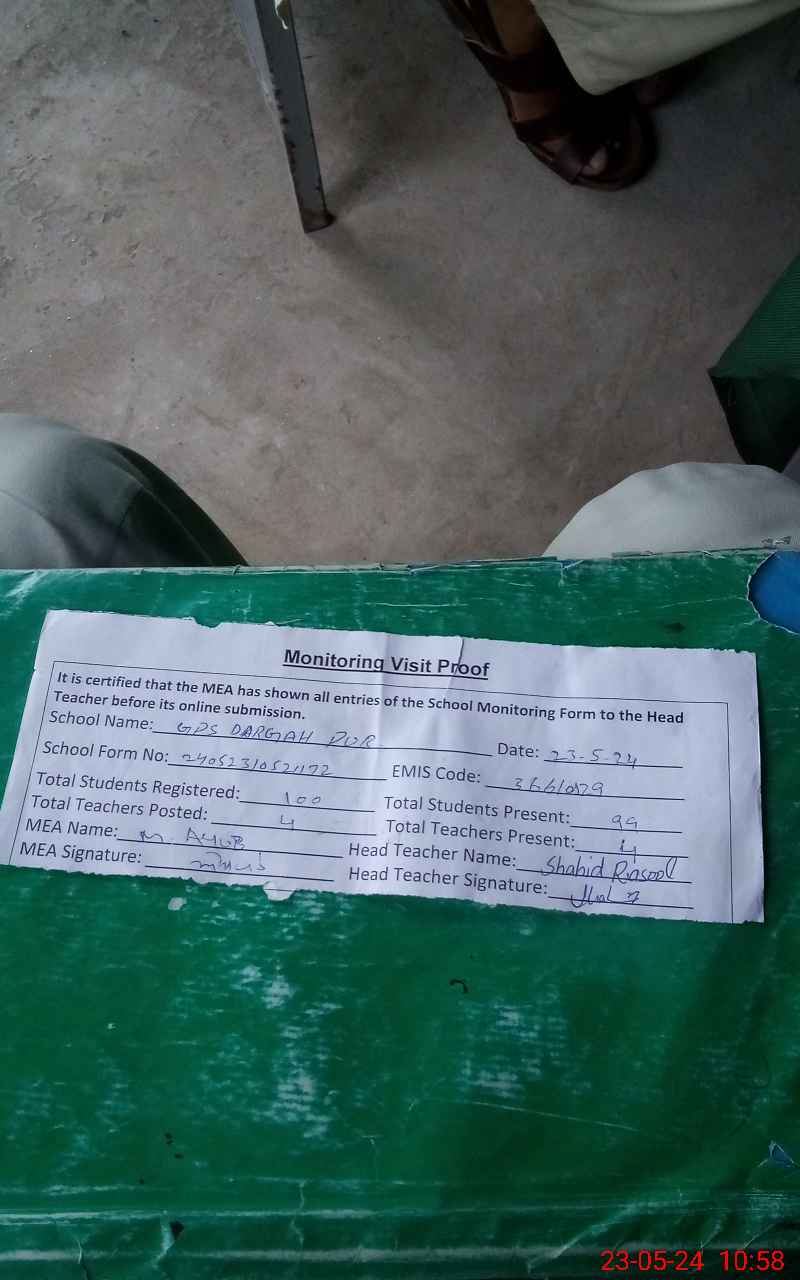 Monitoring Visit Proof
It is certified that the MEA has shown all entries of the School Monitoring Form to the Head
Teacher before its online submission.
School Name: GPS DARGAH PUR Date: 23-5-24
School Form No: EMIS Code:
Total Students Registered: 100 Total Students Present: 99
Total Teachers Posted: 4 Total Teachers Present: 4
MEA Name: M. AYUB Head Teacher Name: Shahid Rasool
MEA Signature: Head Teacher Signature:
23-05-24 10:58